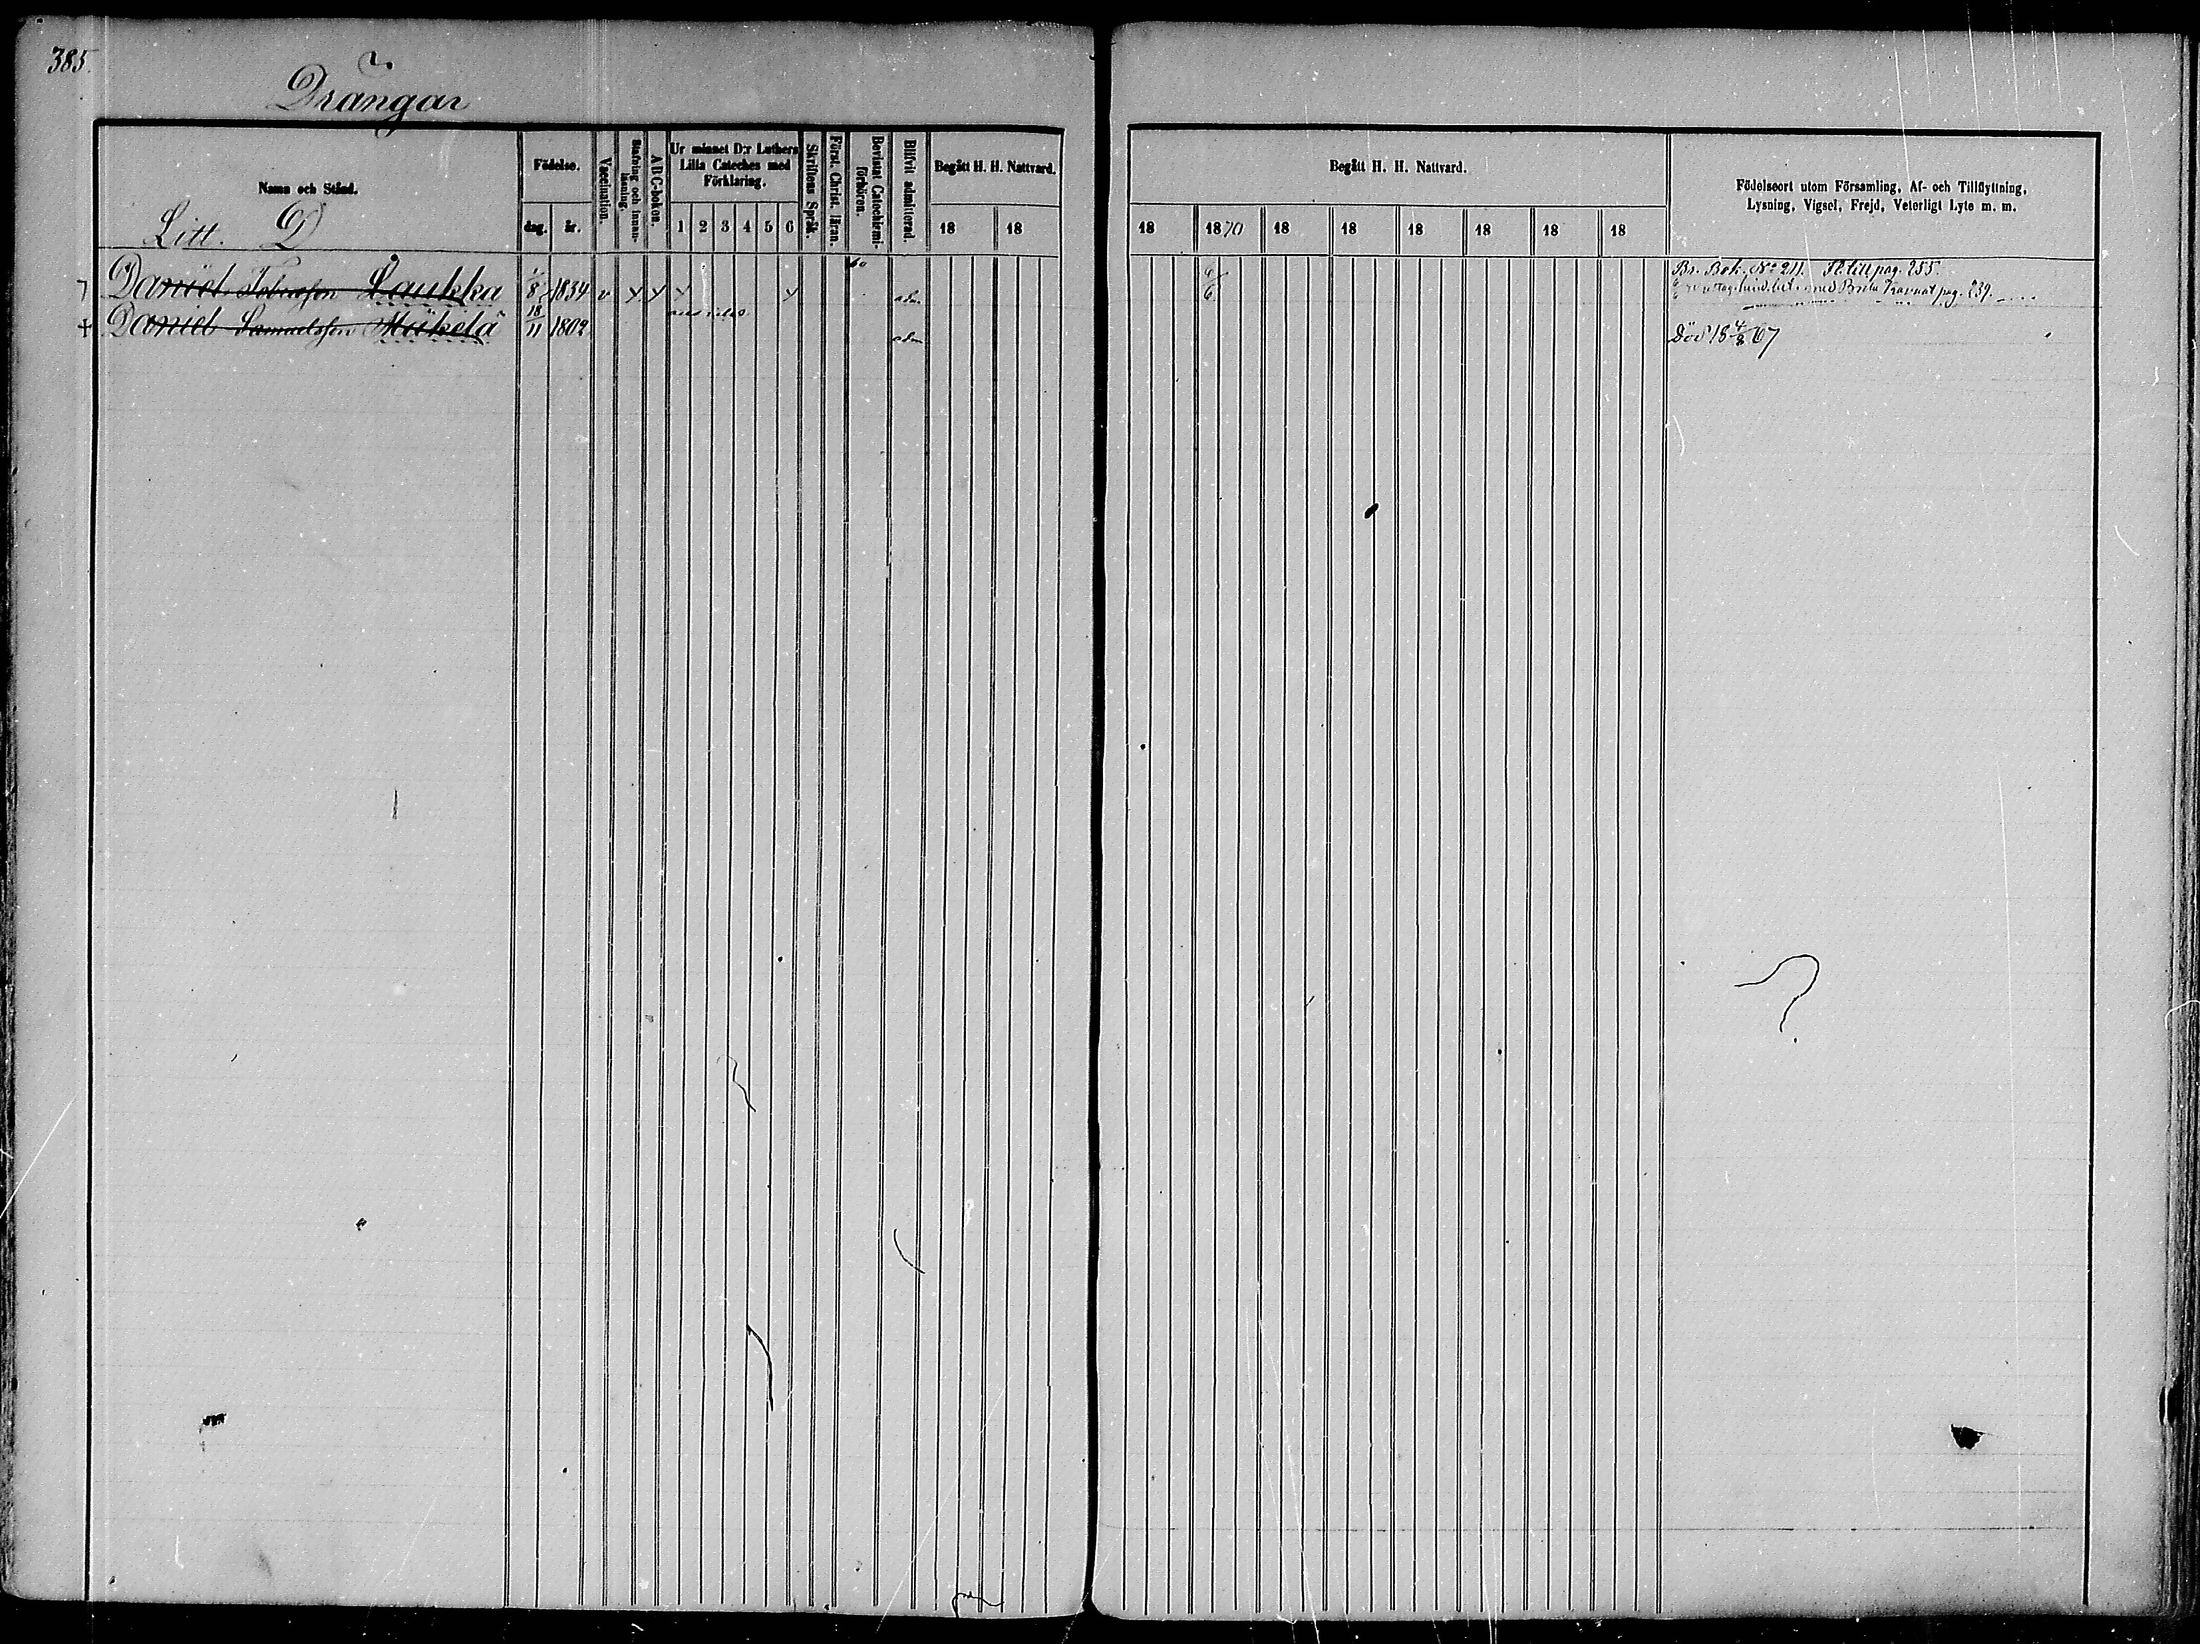 385.
Drängar
Namn och Stånd.
Litt. D
Födelse.
dag. år.
Vaccination.
Stafning och innanläsning.
ABC-boken.
Ur minnet D:r Luthers
Lilla Cateches med
Förklaring.
1 2 3 4 5 6
Skriftens Språk.
Först. Christ. läran.
Bevistat Catechismiförhören.
Blifvit admitterad.
Begått H. H. Nattvard.
18 18
Begått H. H. Nattvard.
18 1870 18 18 18 18 18 18
Födelseort utom Församling, Af- och Tillflyttning,
Lysning, Vigsel, Frejd, Veterligt Lyte m. m.
Daniel Tobiasson Laukka 1/8 1834 v adm Br. Bok. No 211. Fl. till pag. 255.
med Brita pag. 239.
† Daniel Samuelsson Mäkelä 18/11 1802 adm Död 18 4/8 67